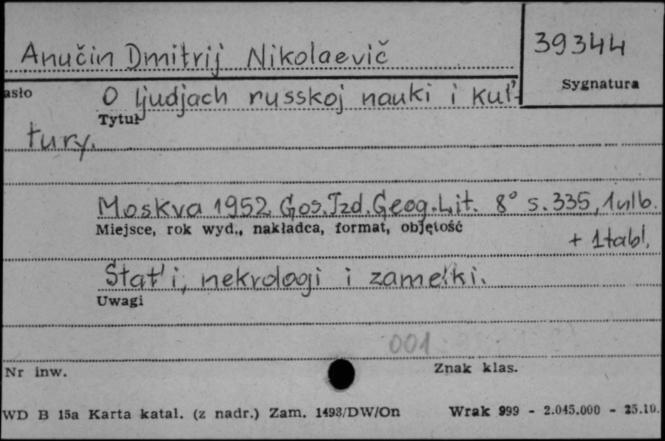 Anučin Dmitrij Nikolaevič
39344
Sygnatura
asło
O ljudjach russkoj nauki i kul'-
Tytuł
tury.
Moskva 1952 Gos. Izd. Geog. Lit. 8° s. 335, 1 nlb.
Miejsce, rok wyd., nakładca, format, objętość
+ 1 tabl.
Stat'i, nekrologi i zametki.
Uwagi
001
Nr inw.
Znak klas.
WD B 15a Karta katal. (z nadr.) Zam. 1493/DW/On
Wrak 999 - 2.045.000 - 25.10.